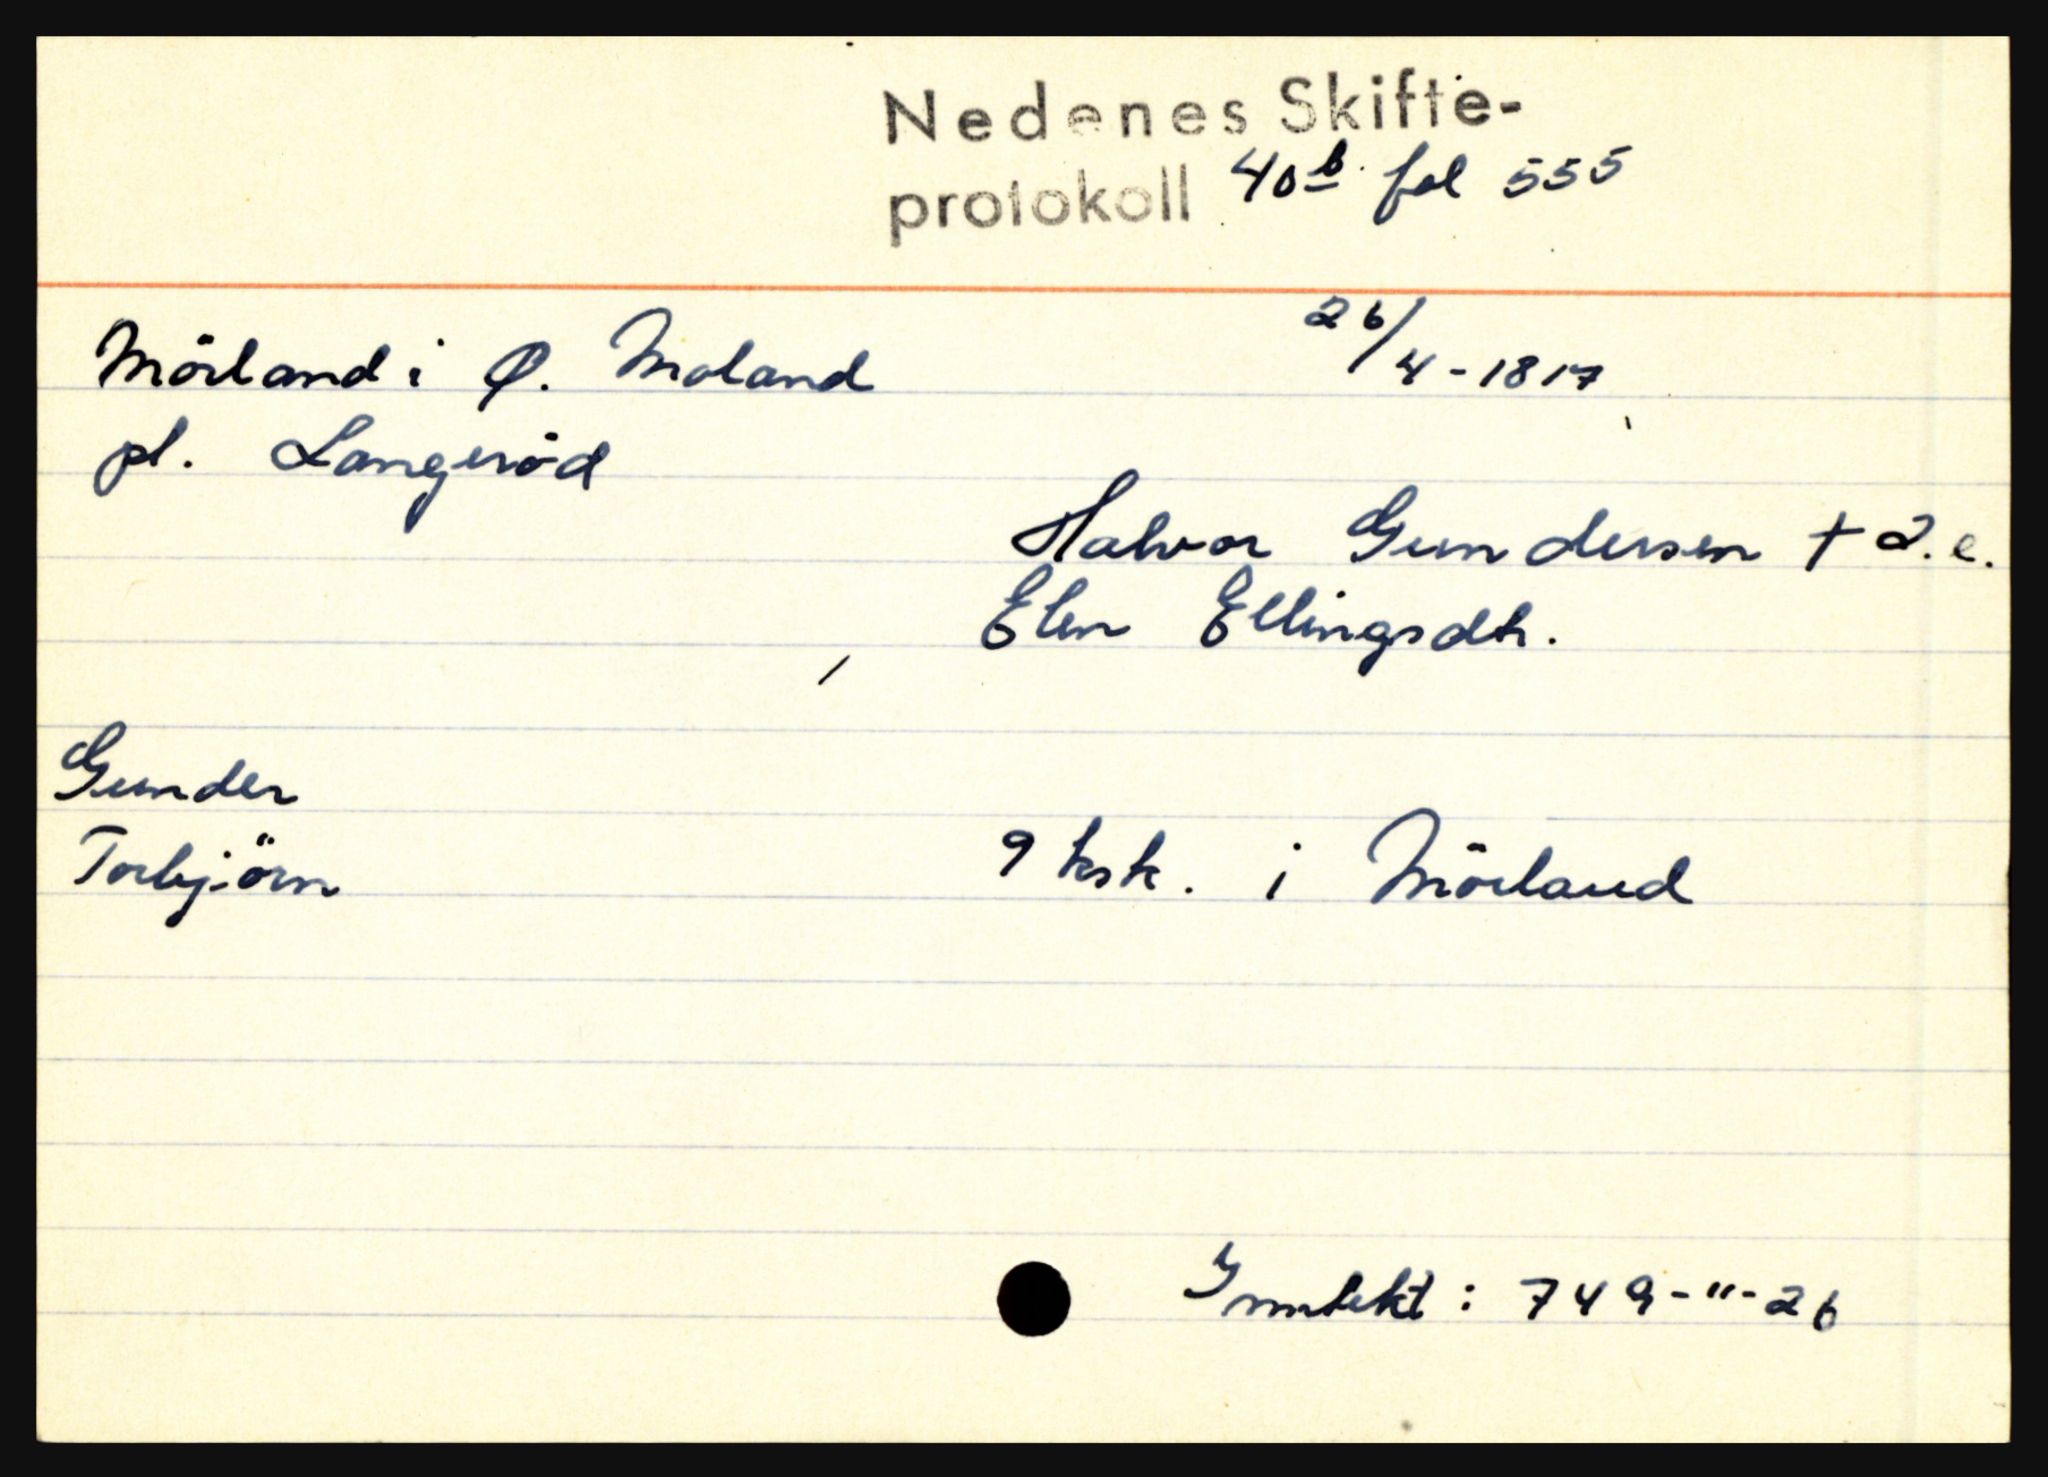 Nedenes Skifte-
protokoll 40b fol 555
Mörland i Ø. Moland 26/4-1817
pl. Langeröd
Halvor Gundersen + d.e.
Elen Ellingsdtr.
Gunder
Torbjörn 9 ksk. i Mörland
Inntekt: 749-"-26